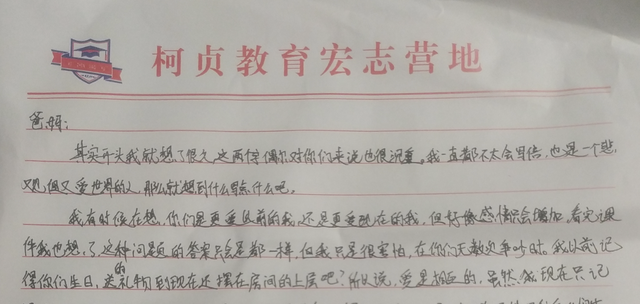 柯贞教育宏志营地
爸妈:
其实开头我就想了很久,这两个字偶尔对你们来说也很沉重。我一直都不太会写信,也是一个悲
观但又爱世界的人,那么就想到什么写什么吧。
我有时候在想,你们是更爱以前的我,还是更爱现在的我,但好像感情只会增加,看完课
件我也想,了这种问题的答案只会是都一样,但我只是很害怕,在你们无数次争吵时。我以前记
得你们生日,送的礼物到现在还摆在房间的上层吧?所以说,爱是相互的,虽然我现在只记